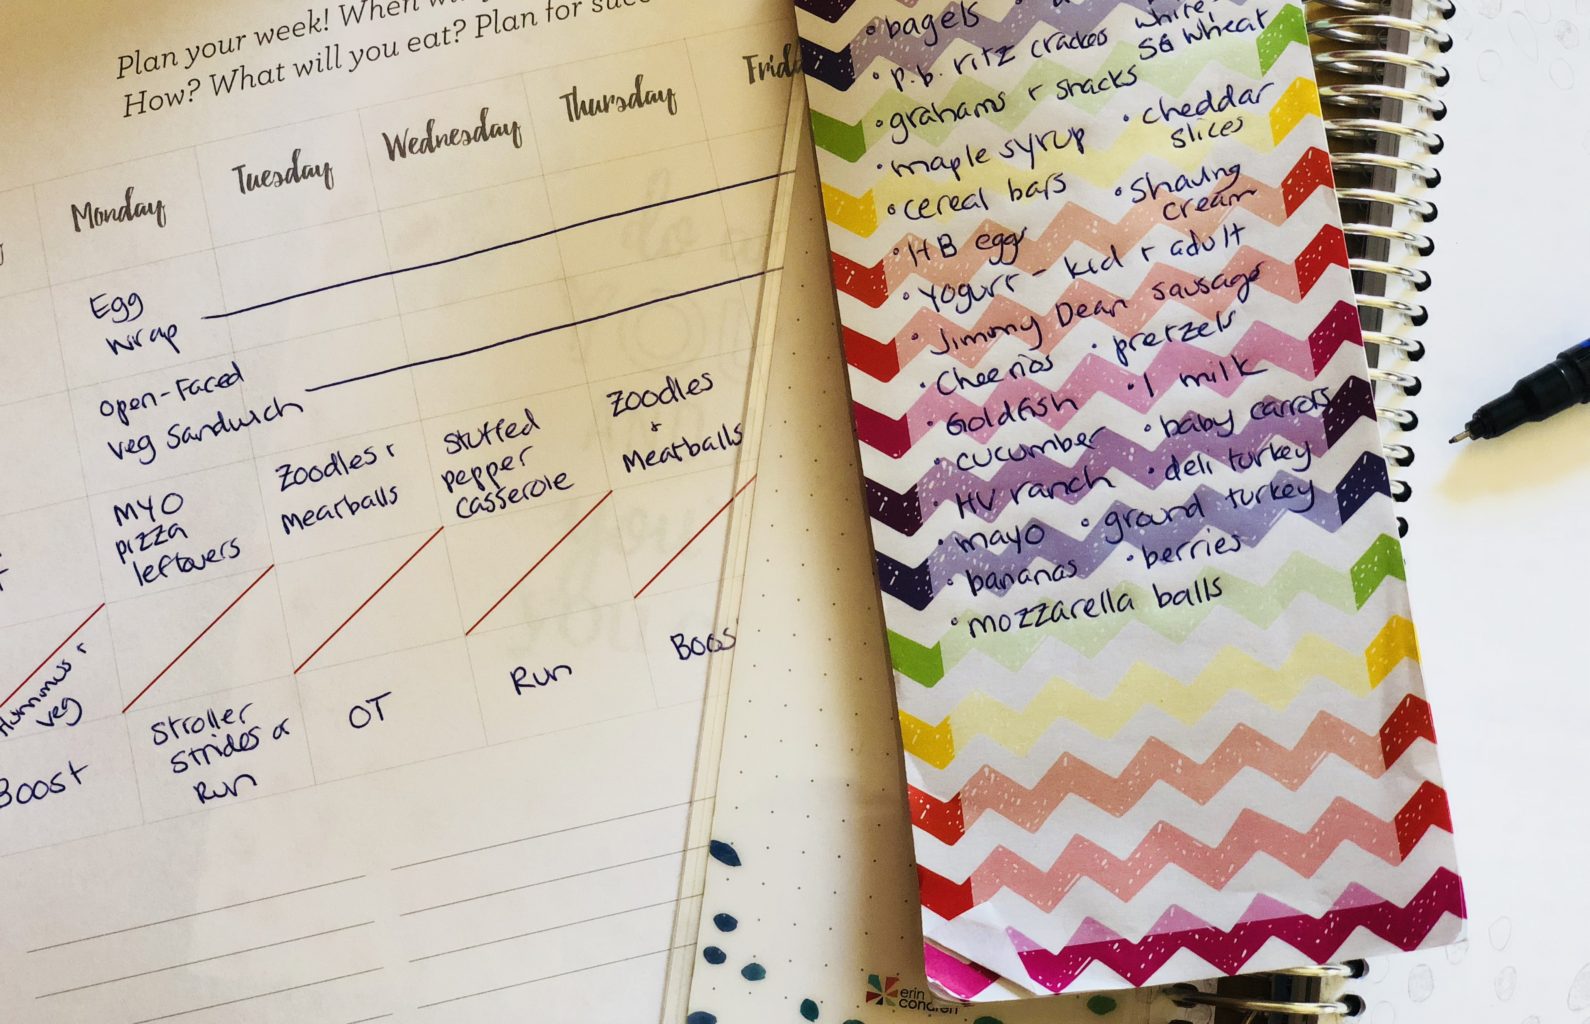 Plan your week! When will
How? What will you eat? Plan for
Monday
Tuesday
Wednesday
Thursday
Egg
wrap
open-Faced
veg sandwich
MYO
pizza
leftovers
Zoodles +
Meatballs
Stuffed
pepper
casserole
Zoodles
+
Meatballs
Hummus +
veg
Boost
Stroller
Strides or
Run
OT
Run
• bagels
white,
• P.b. ritz crackes
SG wheat
• grahams + snacks
• maple syrup
• cheddar
slices
• cereal bars
• Shaving
cream
• HB eggs
• Yogurt - kid + adult
• Jimmy Dean sausage
• Cheerios
• pretzels
• Goldfish
• 1 milk
• cucumber
• baby carrots
• HV ranch
• deli turkey
• mayo
• ground turkey
• bananas
• berries
• mozzarella balls
erin
condren